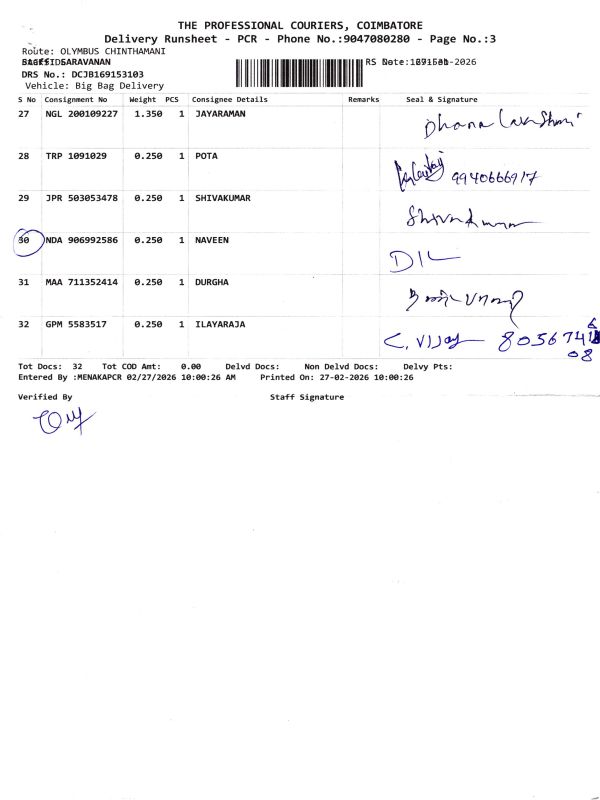 THE PROFESSIONAL COURIERS, COIMBATORE
Delivery Runsheet - PCR - Phone No.:9047080280 - Page No.:3
Route: OLYMBUS CHINTHAMANI
SARAVANAN
DRS No.: DCJB169153103
Vehicle: Big Bag Delivery
S No Consignment No Weight PCS Consignee Details Remarks Seal & Signature
27 NGL 200109227 1.350 1 JAYARAMAN Dhana Lakshmi
28 TRP 1091029 0.250 1 POTA 9940666917
29 JPR 503053478 0.250 1 SHIVAKUMAR Shivakumar
30 NDA 906992586 0.250 1 NAVEEN
31 MAA 711352414 0.250 1 DURGHA
32 GPM 5583517 0.250 1 ILAYARAJA C. Vijay
08
Tot Docs: 32 Tot COD Amt: 0.00 Delvd Docs: Non Delvd Docs: Delvy Pts:
Entered By :MENAKAPCR 02/27/2026 10:00:26 AM Printed On: 27-02-2026 10:00:26
Verified By Staff Signature